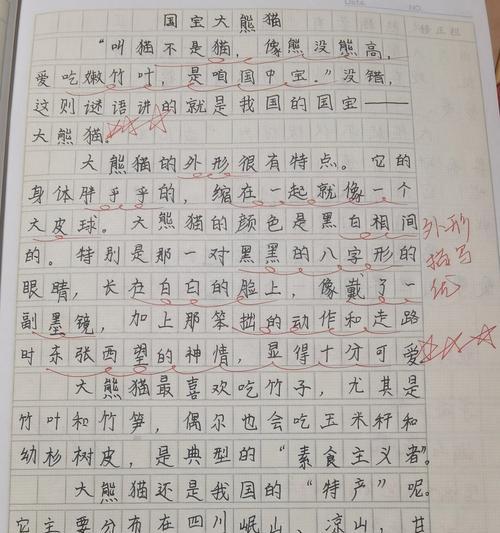 国宝大熊猫
“叫猫不是猫，像熊没熊高，
爱吃嫩竹叶，是咱国中宝。”没错，
这则谜语讲的就是我国的国宝——
大熊猫。
大熊猫的外形很有特点。它的
身体胖乎乎的，缩在一起就像一个
大皮球。大熊猫的颜色是黑白相间
的。特别是那一对黑黑的八字形的
眼睛，长在白白的脸上，像戴了一
副墨镜，加上那笨拙的动作和走路
时东张西望的神情，显得十分可爱
外形
描写
优
大熊猫最喜欢吃竹子，尤其是
竹叶和竹笋，偶尔也会吃玉米秆和
幼杉树皮，是典型的“素食主义者”。
大熊猫还是我国的“特产”呢。
它主要分布在四川岷山、凉山，甘